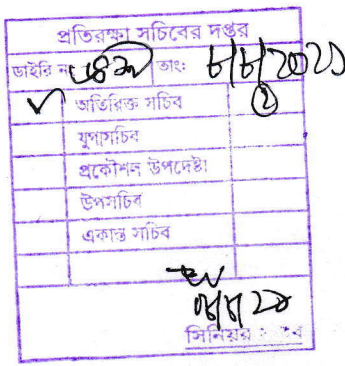 প্রতিরক্ষা সচিবের দপ্তর
ডাইরি নং তাং: ৮/৮/2021
অতিরিক্ত সচিব
যুগ্মসচিব
প্রকৌশল উপদেষ্টা
উপসচিব
একান্ত সচিব
সিনিয়র সচিব